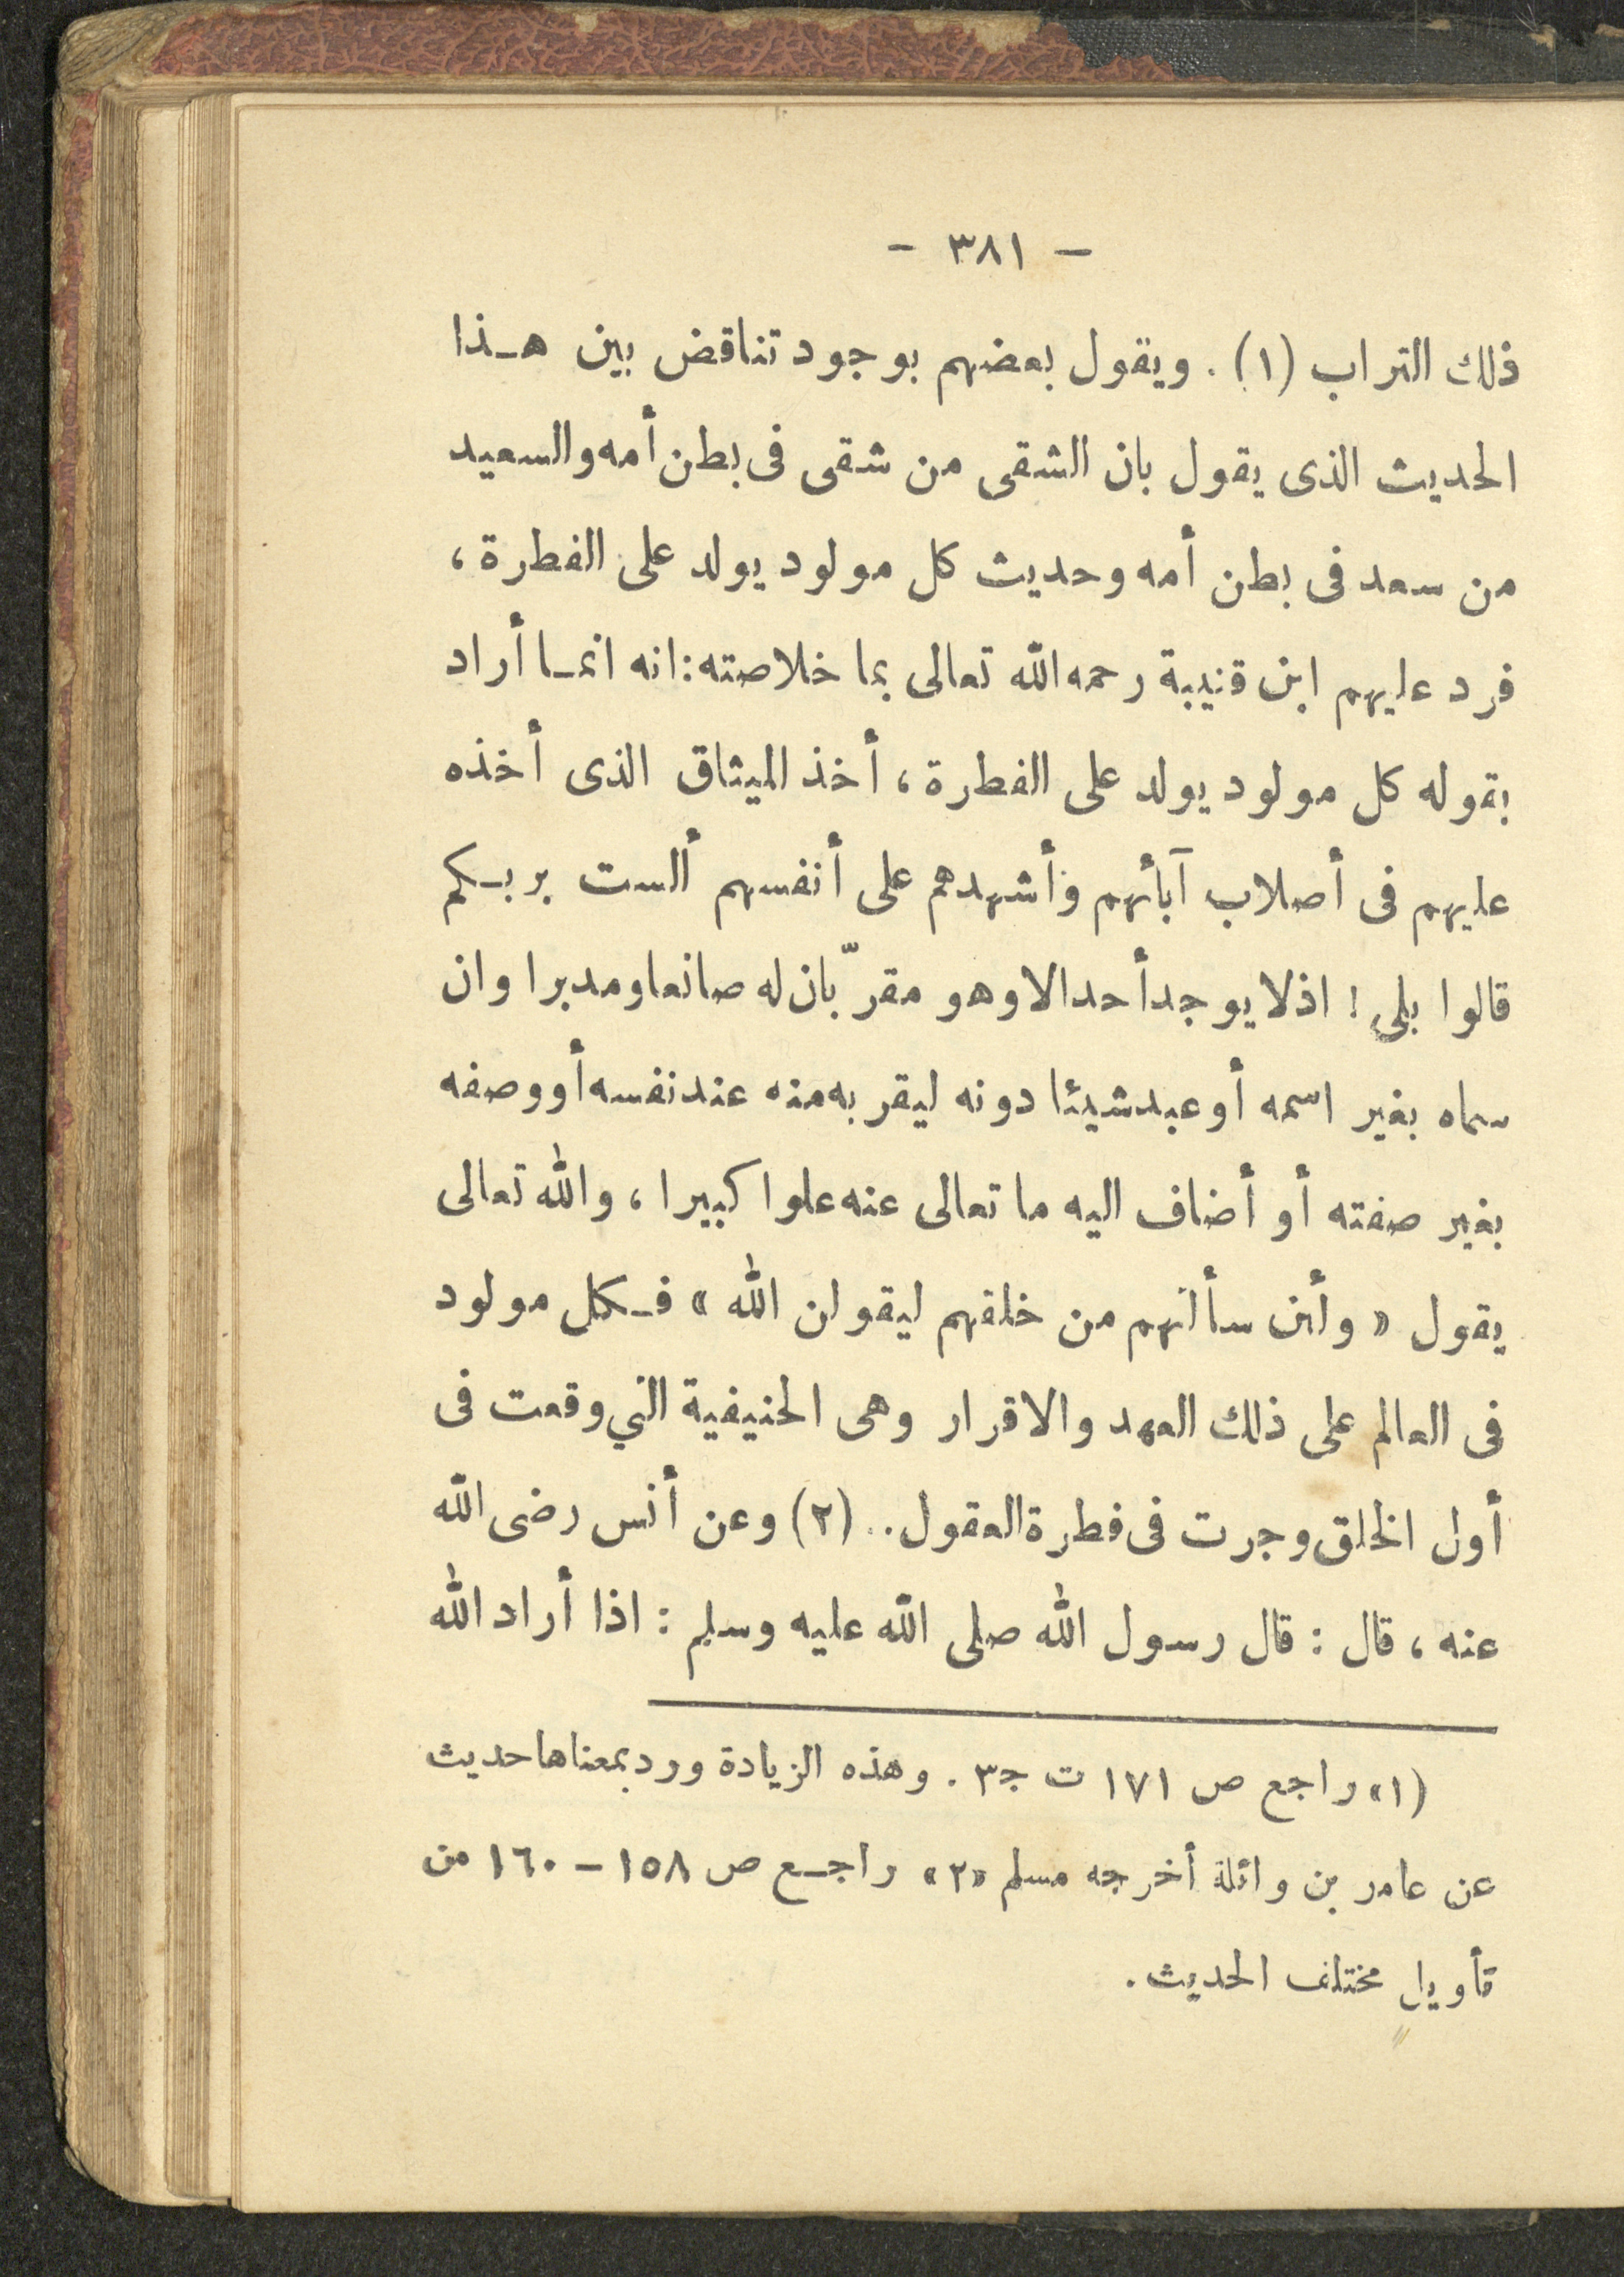 – ٣٨١ –
ذلك التراب (١). ويقول بعضهم بوجود تناقض بين هـذا
الحديث الذى يقول بان الشقى من شقى فى بطن أمه والسعيد
من سعد فى بطن أمه وحديث كل مولود يولد على الفطرة ،
فرد عليهم ابن قتيبة رحمه الله تعالى بما خلاصته: انه انمـا أراد
بقوله كل مولود يولد على الفطرة ، أخذ الميثاق الذى أخذه
عليهم فى أصلاب آبأئهم وأشهدهم على أنفسهم ألست بربـكم
قالوا بلى ! اذ لا يوجد أحد الا وهو مقرّ بان له صانعا ومدبرا وان
سماه بغير اسمه أو عبد شيئا دونه ليقر به منه عند نفسه أو وصفه
بغير صفته أو أضاف اليه ما تعالى عنه علوا كبيرا ، والله تعالى
يقول « ولئن سألتهم من خلقهم ليقولن الله » فـكل مولود
فى العالم على ذلك العهد والاقرار وهى الحنيفية التي وقعت فى
أول الخلق وجرت فى فطرة العقول.. (٢) وعن أنس رضى الله
عنه ، قال : قال رسول الله صلى الله عليه وسلم : اذا أراد الله
(١» راجع ص ١٧١ ت ج٣ . وهذه الزيادة ورد بمعناها حديث
عن عامر بن واثلة أخرجه مسلم «٢» راجـع ص ١٥٨ – ١٦٠ من
تأويل مختلف الحديث .